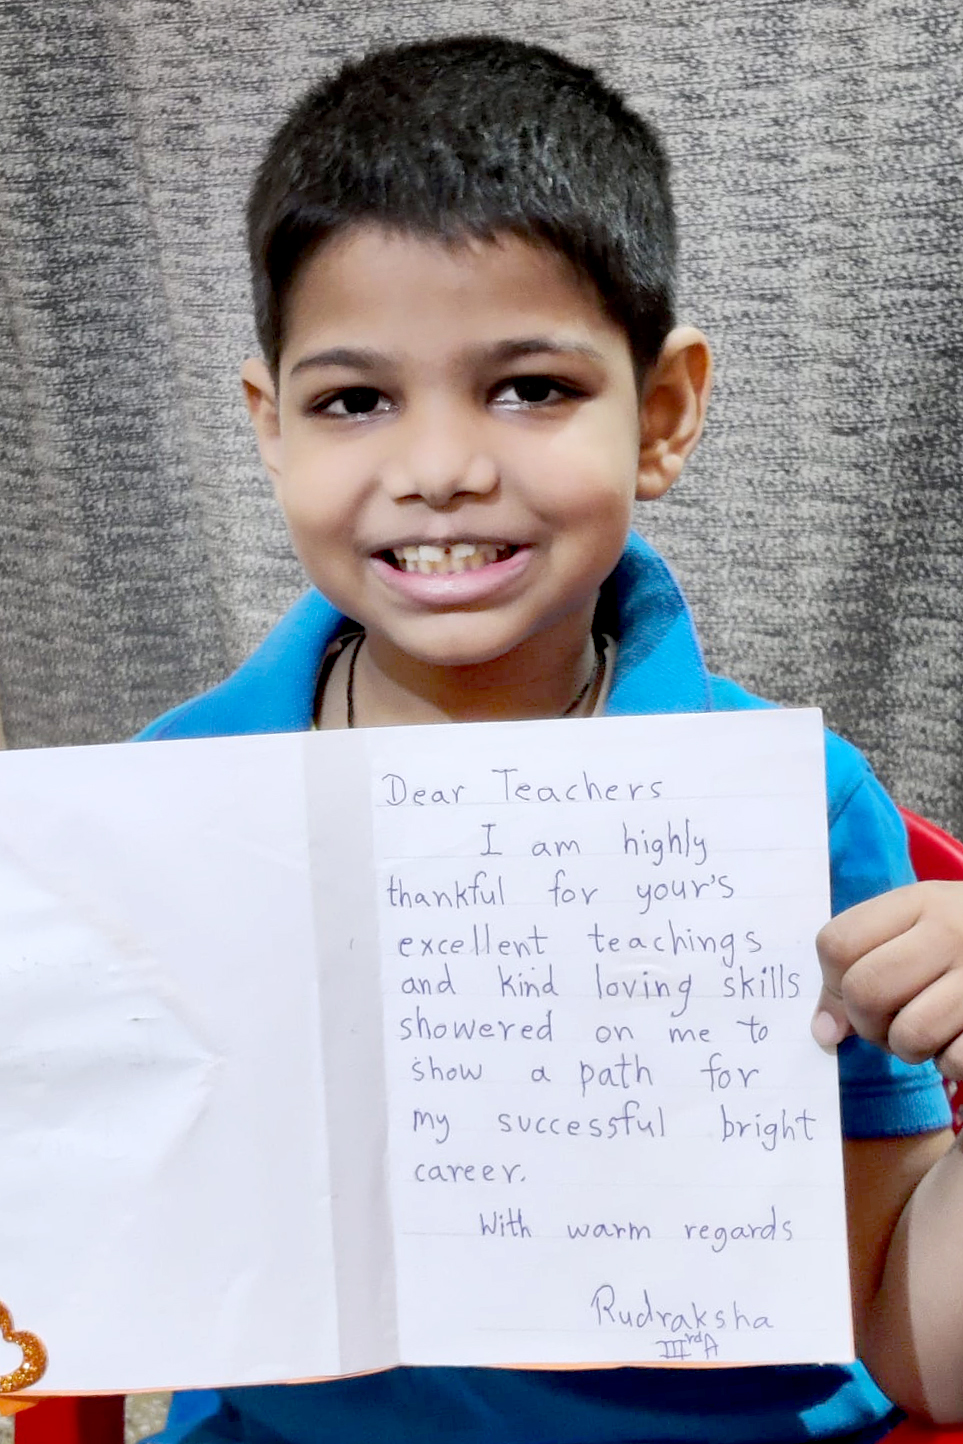 Dear Teachers
I am highly
thankful for your's
excellent teachings
and kind loving skills
showered on me to
show a path for
my successful bright
career.
With warm regards
Rudraksha
IIIrd A